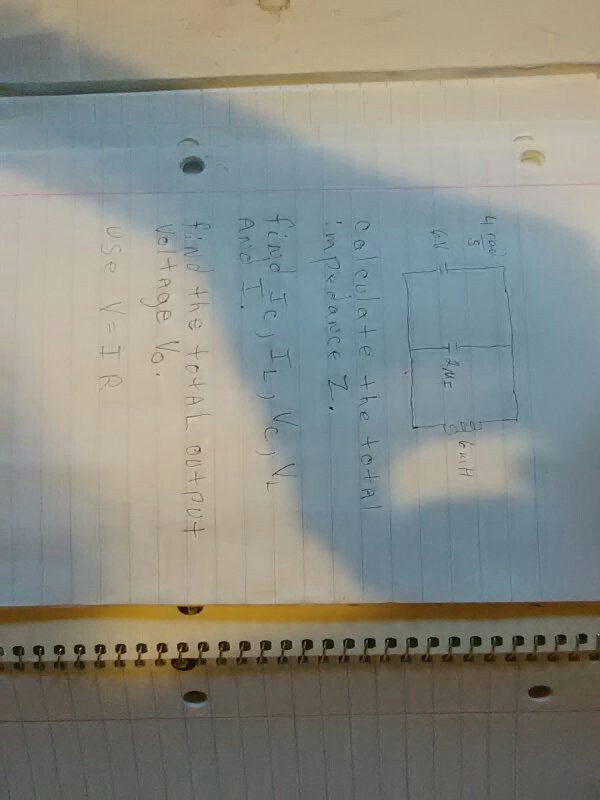 4 rad/s
6V
6mH
Calculate the total
impedance Z.
find Ic, IL, Vc, VL
And I.
find the total output
voltage Vo.
use V = I R